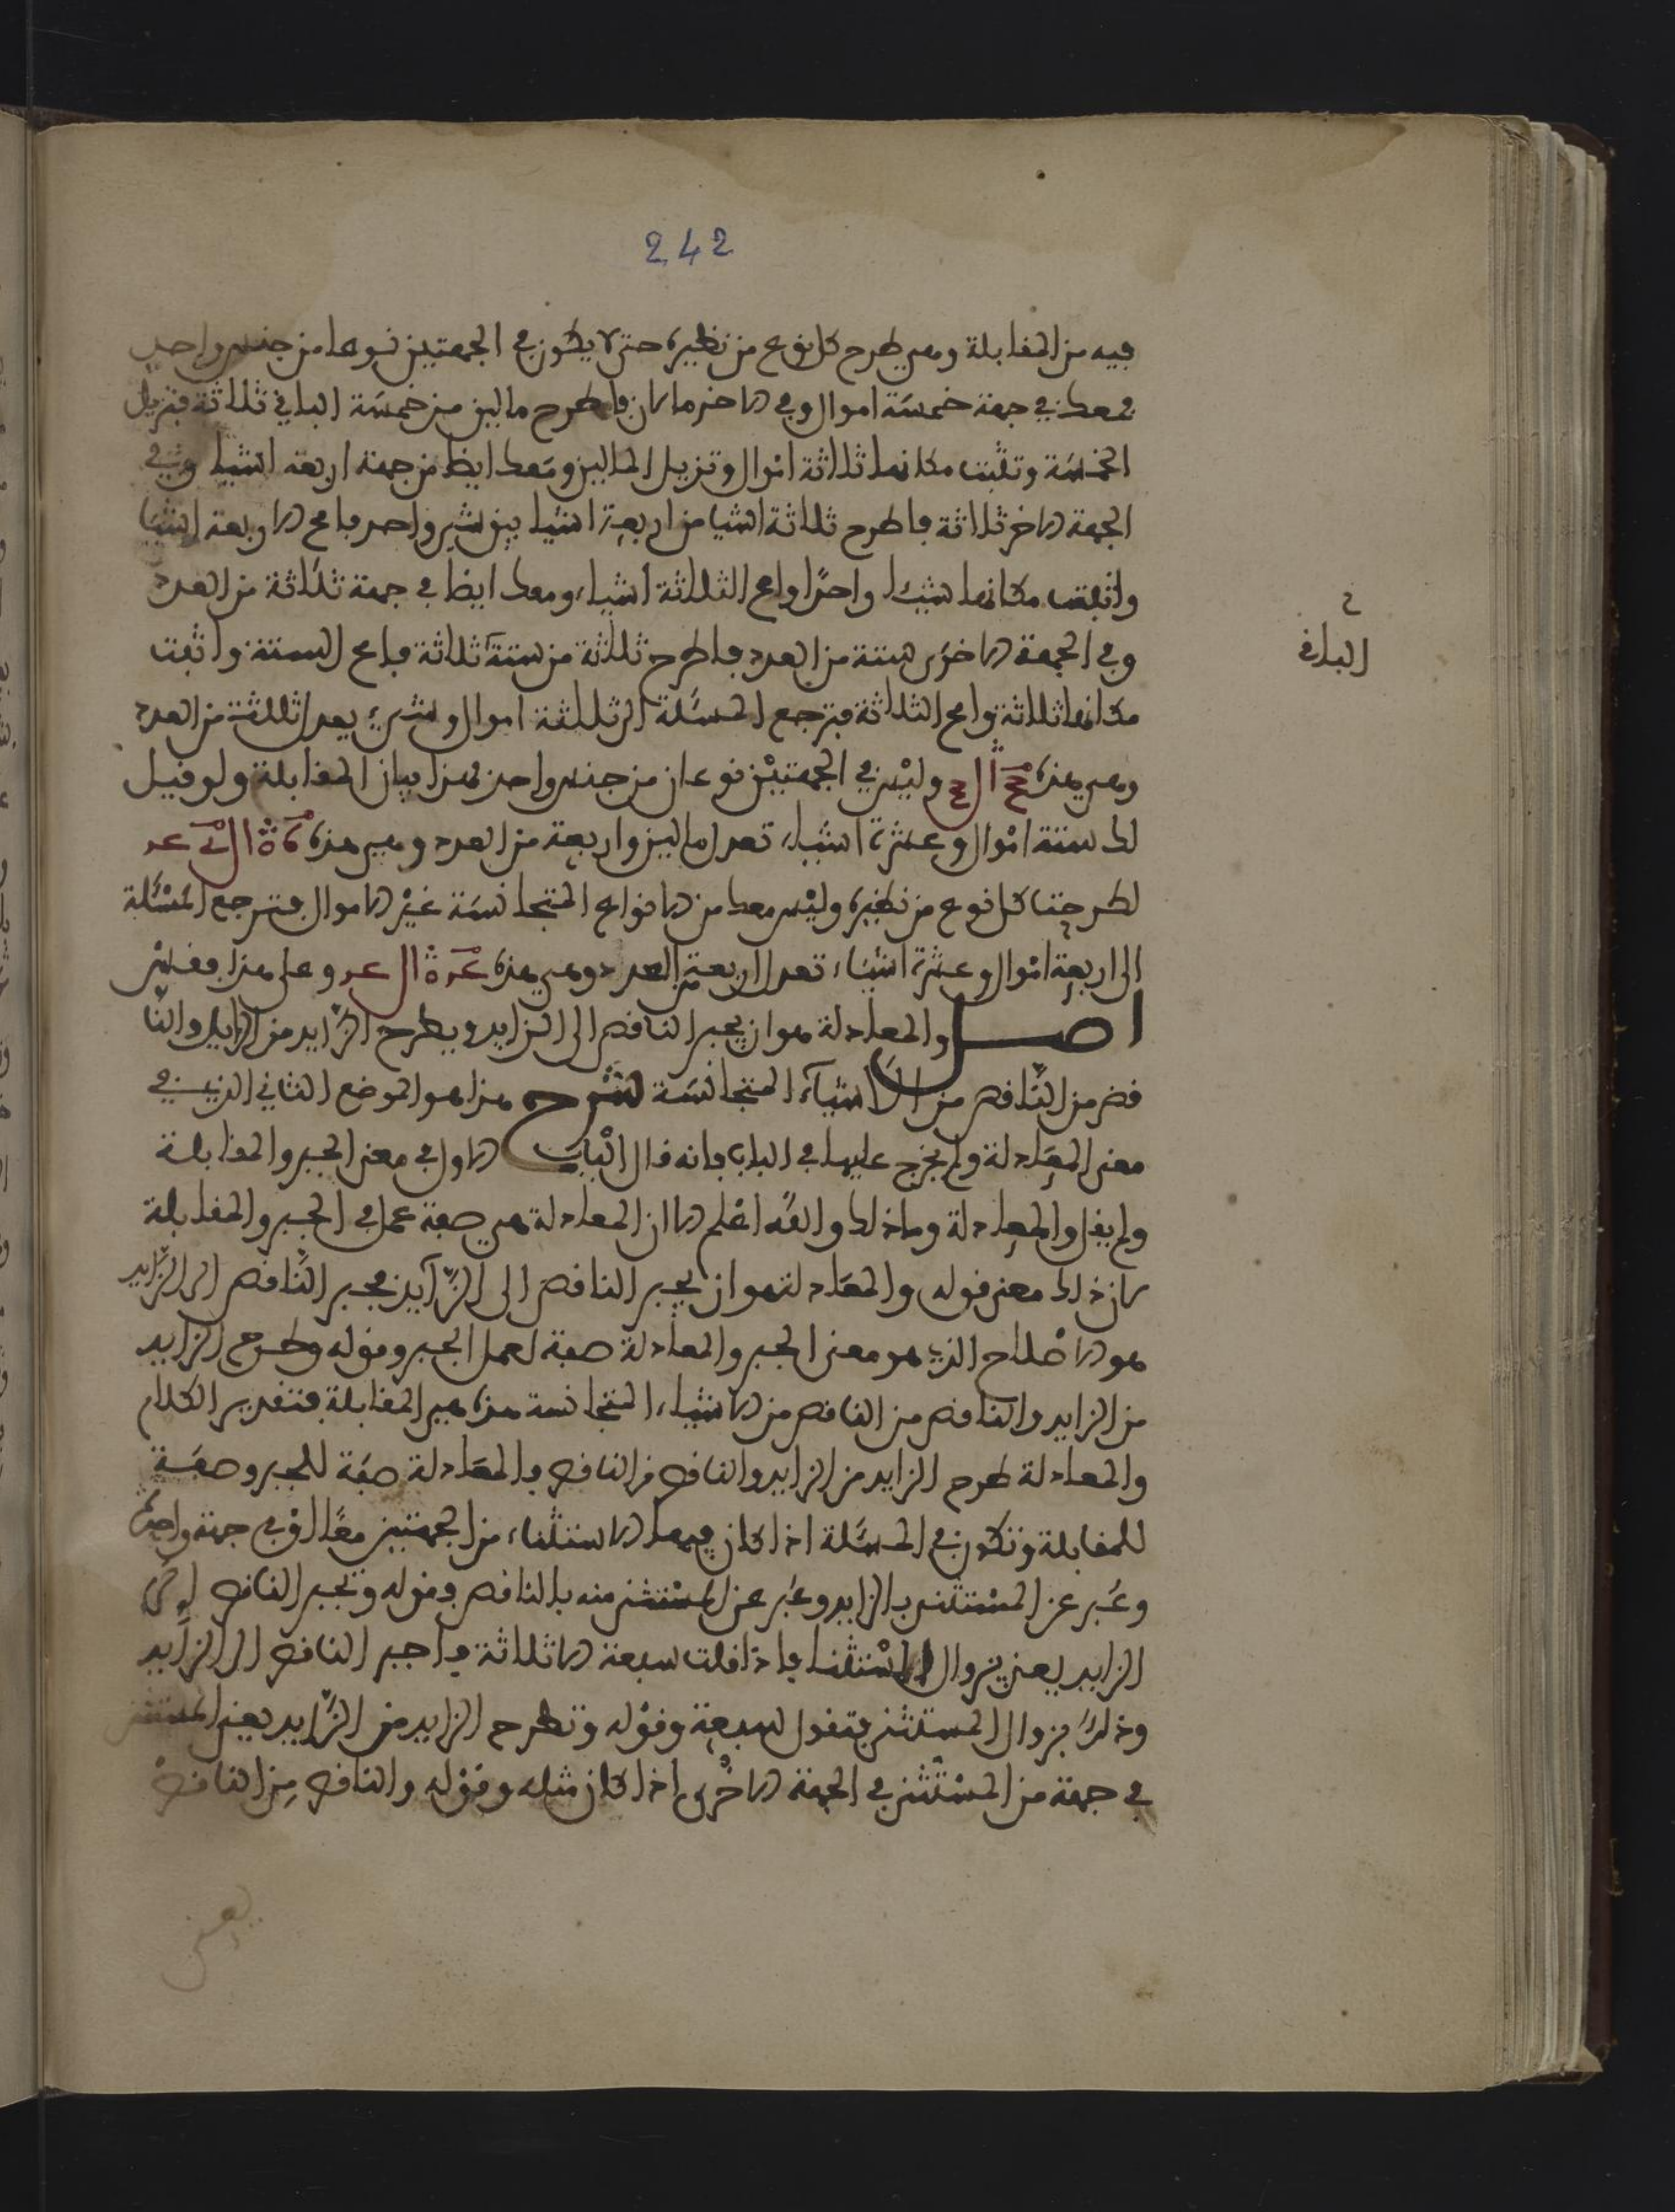 242
فيه من المقابلة وهي طرح كل نوع من نظيره حتى لا يكون في الجهتين نوعا من جنس واحد
فمعك في جهة خمسة اموال وفي الاخر مالان فاطرح مالين من خمسة الباقي ثلاثة فتزيل
الخمسة وتثبت مكانها ثلاثة اموال وتزيل المالين ومعك ايضا من جهة اربعة اشيا وفي
الجهة الاخر ثلاثة فاطرح ثلاثة اشيا من اربعة اشيا يبق شيء واحد فامح الاربعة اشيا
واثبت مكانها شيئا واحدا وامح الثلاثة أشياء ومعك ايضا في جهة ثلاثة من العدد
وفي الجهة الاخرى ستة من العدد فاطرح ثلاثة من ستة ثلاثة فامح الستة واثبت
الباقي
مكانها ثلاثة وامح الثلاثة فترجع المسئلة الى ثلاثة اموال وشيء يعدل ثلاثة من العدد
وهي هذه وليس في الجهتين نوعان من جنس واحد فهذا بيان المقابلة ولو قيل
لك ستة اموال وعشرة اشياء تعدل مالين واربعة من العدد وهي هذه
لطرحت كل نوع من نظيره وليس معك من الانواع المتجانسة غير الاموال فترجع المسئلة
الى اربعة اموال وعشرة اشياء تعدل اربعة من العدد وهي هذه وعلى هذا فقس
اصل والمعادلة هو ان يجبر الناقص الى الزايد ويطرح الزايد من الزايد والنا
قص من الناقص من الاشياء المتجانسة شرح هذا هو الموضع الثاني الذي في
معنى المعادلة ولم يخرج عليها في الباب فانه قال الباب الاول في معنى الجبر والمقابلة
ولم يقل والمعادلة وما ذلك والله اعلم الا ان المعادلة هي صفة عمل في الجبر والمقابلة
لان ذلك معنى قوله والمعادلة هو ان يجبر الناقص الى الزايد فجبر الناقص الى الزايد
هو الاصلاح الذي هو معنى الجبر والمعادلة صفة لعمل الجبر وقوله وطرح الزايد
من الزايد والناقص من الناقص من الاشياء المتجانسة هذه هي المقابلة فتقدير الكلام
والمعادلة طرح الزايد من الزايد والناقص من الناقص فالمعادلة صفة للجبر وصفة
للمقابلة وتكون في المسئلة اذا كان فيها الاستثناء من الجهتين معا او في جهة واحدة
وعبر عن المستثنى بالزايد وعبر عن المستثنى منه بالناقص وقوله وتجبر الناقص الى
الزايد يعني بزوال الاستثنا فاذا قلت سبعة الا ثلاثة فاجبر الناقص الى الزايد
وذلك بزوال المستثنى فتقول سبعة وقوله وتطرح الزايد من الزايد يعني المستثنى
في جهة من المستثنى في الجهة الاخرى اذا كان مثله وقوله والناقص من الناقص
يعني